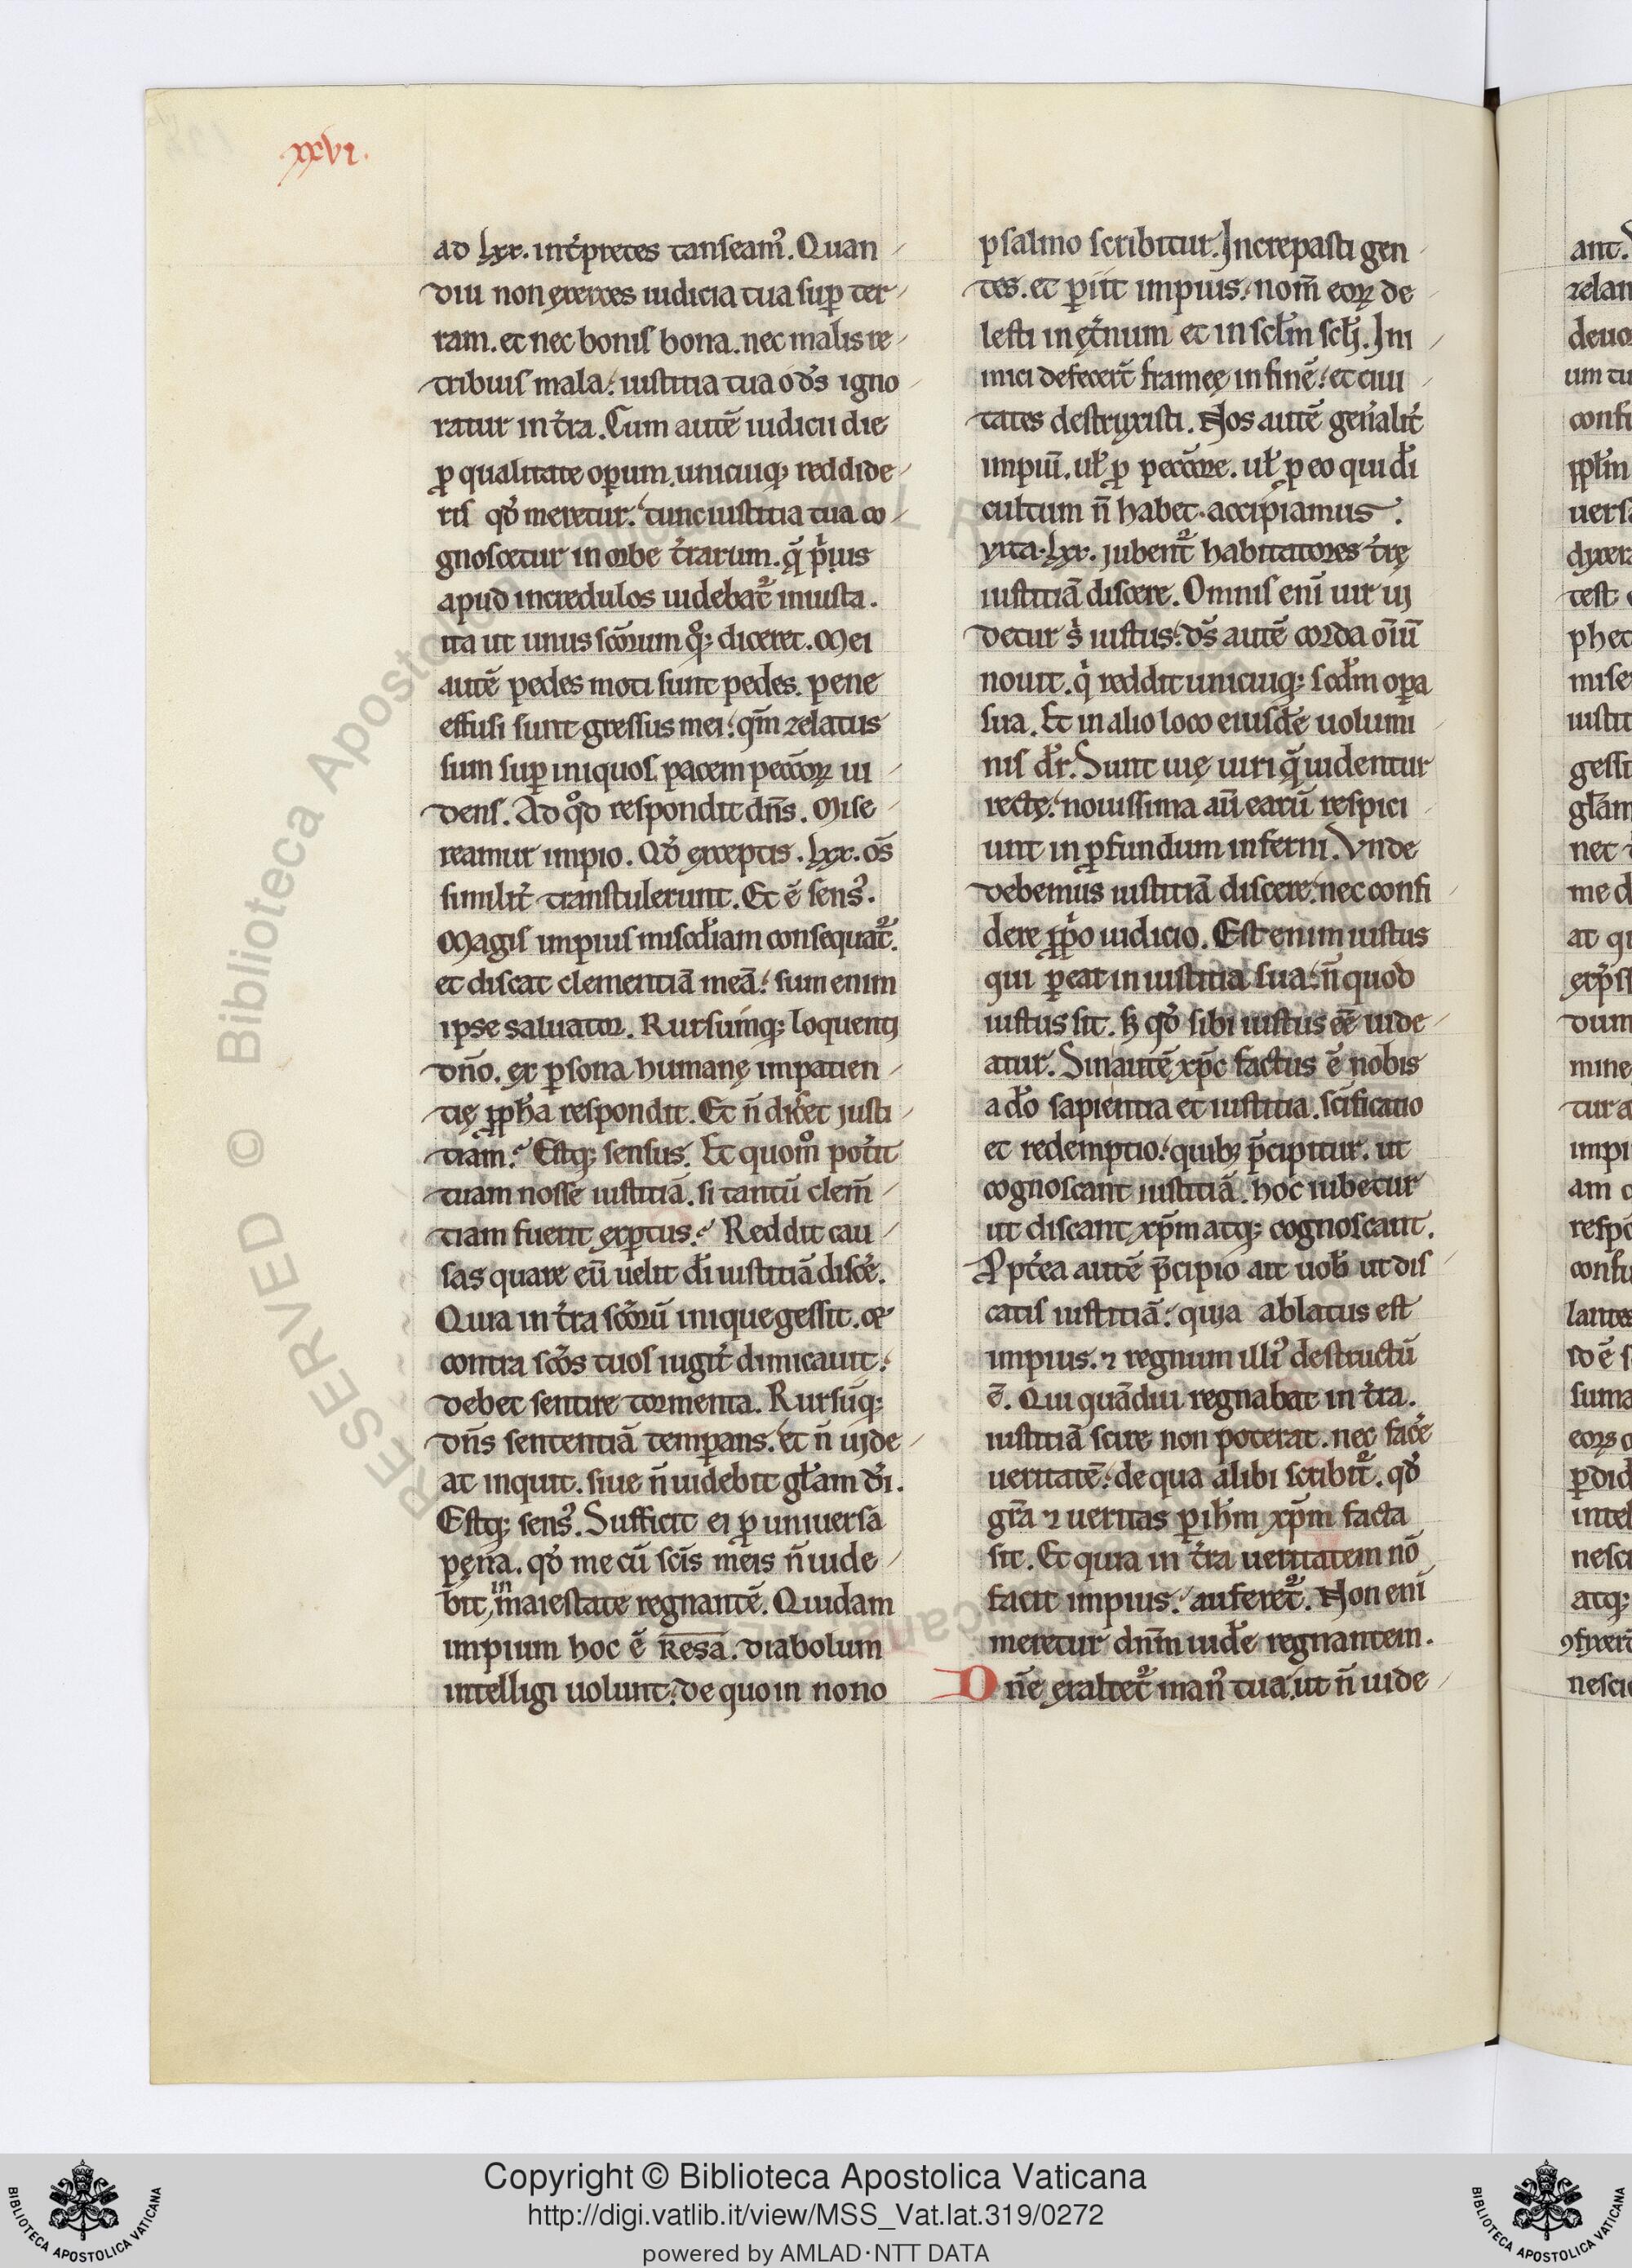 .xxvi.
ad lxx. int̓pretes tanseam᷒. Quan
diu non exerces iudicia tua sup̱ ter
ram. et nec bonis bona. nec malis re
tribuis mala: iustitia tua o d̓s igno
ratur in t̓ra. Cum autē iudicii die
ꝓ qualitate op̱um. unicuiq; reddide
ris qd̓ meretur: tunc iustitia tua co
gnoscetur in orbe t̓rarum. q̨̄ p̓ius
apud incredulos uidebat᷑ iniusta.
ita ut unus sc̄orum qͦ; diceret. Mei
autē pedes moti sunt pedes. pene
effusi sunt gressus mei: qm̄ zelatus
sum sup̱ iniquos pacem pecc̄oꝝ ui
dens. Ad qͦd respondit dn̄s. Mise
reamur impio. Qd̓ exceptis .lxx. oc̄s
similit̓ transtulerunt. Et ē sens᷒.
Magis impius misc̄diam consequat᷑.
et discat clementiā meā: sum enim
ipse saluator. Rursumq; loquenti
dn̄o. ex p̱sona humanę impatien
tię ꝓph̄a respondit. Et n̄ dic̓et justi
tiam: Estq; sensus. Et quomͦ pot̓it
tuam nosse iustitiā. si tantū clem̄
tiam fuerit exp̱tus: Reddit cau
sas quare eū uelit dī iustitiā disc̓e.
Quia in t̓ra sc̄orū inique gessit. &
contra sc̄os tuos iugit̓ dimicauit:
debet sentire tormenta. Rursūq;
dn̄s sententiā temp̱ans. et n̄ uide
at inquit. siue n̄ uidebit gl̄am d̓i.
Estq; sens᷒. Sufficit ei ꝓ uniuersa
pęna. qd̓ me cū sc̄is meis n̄ uide
bit in maiestate regnantē. Quidam
impium hoc ē resa. diabolum
intelligi uolunt: de quo in nono
psalmo scribitur. Increpasti gen
tes. et p̱iit impius: nom̄ eoꝝ de
lesti in ęt̓num et in scl̄m scl̄j. Ini
mici defecer̄t frameę in finē: et ciui
tates destruxisti. Nos autē gen̓alit̓
impiū. ul̄ ꝓ pecc̄ore. ul̄ p̱ eo qui dī
cultum n̄ habet. accipiamus.
yxta .lxx. jubent᷑ habitatores t̓rę
iustitiā discere. Omnis enī uir ui
detur s̓ iustus: ds̄ autē corda oīū
nouit. q̓ reddit unicuiq; scd̄m op̱a
sua. Et in alio loco eiusdē uolumi
nis dr̄. Sunt uię uiri q̨̄ uidentur
rectę: nouissima aū earū respici
unt in ꝓfundum inferni. Vnde
debemus iustitiā discere: nec confi
dere ꝓp̓o iudicio. Est enim iustus
qui p̱eat in iustitia sua: n̄ quod
iustus sit. sꝫ qd̓ sibi iustus ēē uide
atur. Sin autē xp̄c factus ē nobis
a d̄o sapientia et iustitia. sc̄ificatio
et redemptio: quibꝫ p̄cipitur. ut
cognoscant iustitiā. hoc iubetur
ut discant xp̄m atq; cognoscant.
Ꝓpt̓ea autē p̄cipio ait uob̄ ut dis
catis iustitiā: quia ablatus est
impius. ⁊ regnum illi᷒ destructū
ē. Qui quādiu regnabat in t̓ra.
iustitiā scire non poterat. nec fac̓e
ueritatē: de qua alibi scribit᷑. qd̓
gr̄a ⁊ ueritas p̱ ih̄m xp̄m facta
sit. Et quia in t̓ra ueritatem nō
facit impius: auferet᷑. Non enī
meretur dn̄m uid̓e regnantem.
Dn̄e exaltet᷑ man᷒ tua: ut n̄ uide
Copyright © Biblioteca Apostolica Vaticana
http://digi.vatlib.it/view/MSS_Vat.lat.319/0272
powered by AMLAD·NTT DATA
BIBLIOTECA APOSTOLICA VATICANA
BIBLIOTECA APOSTOLICA VATICANA